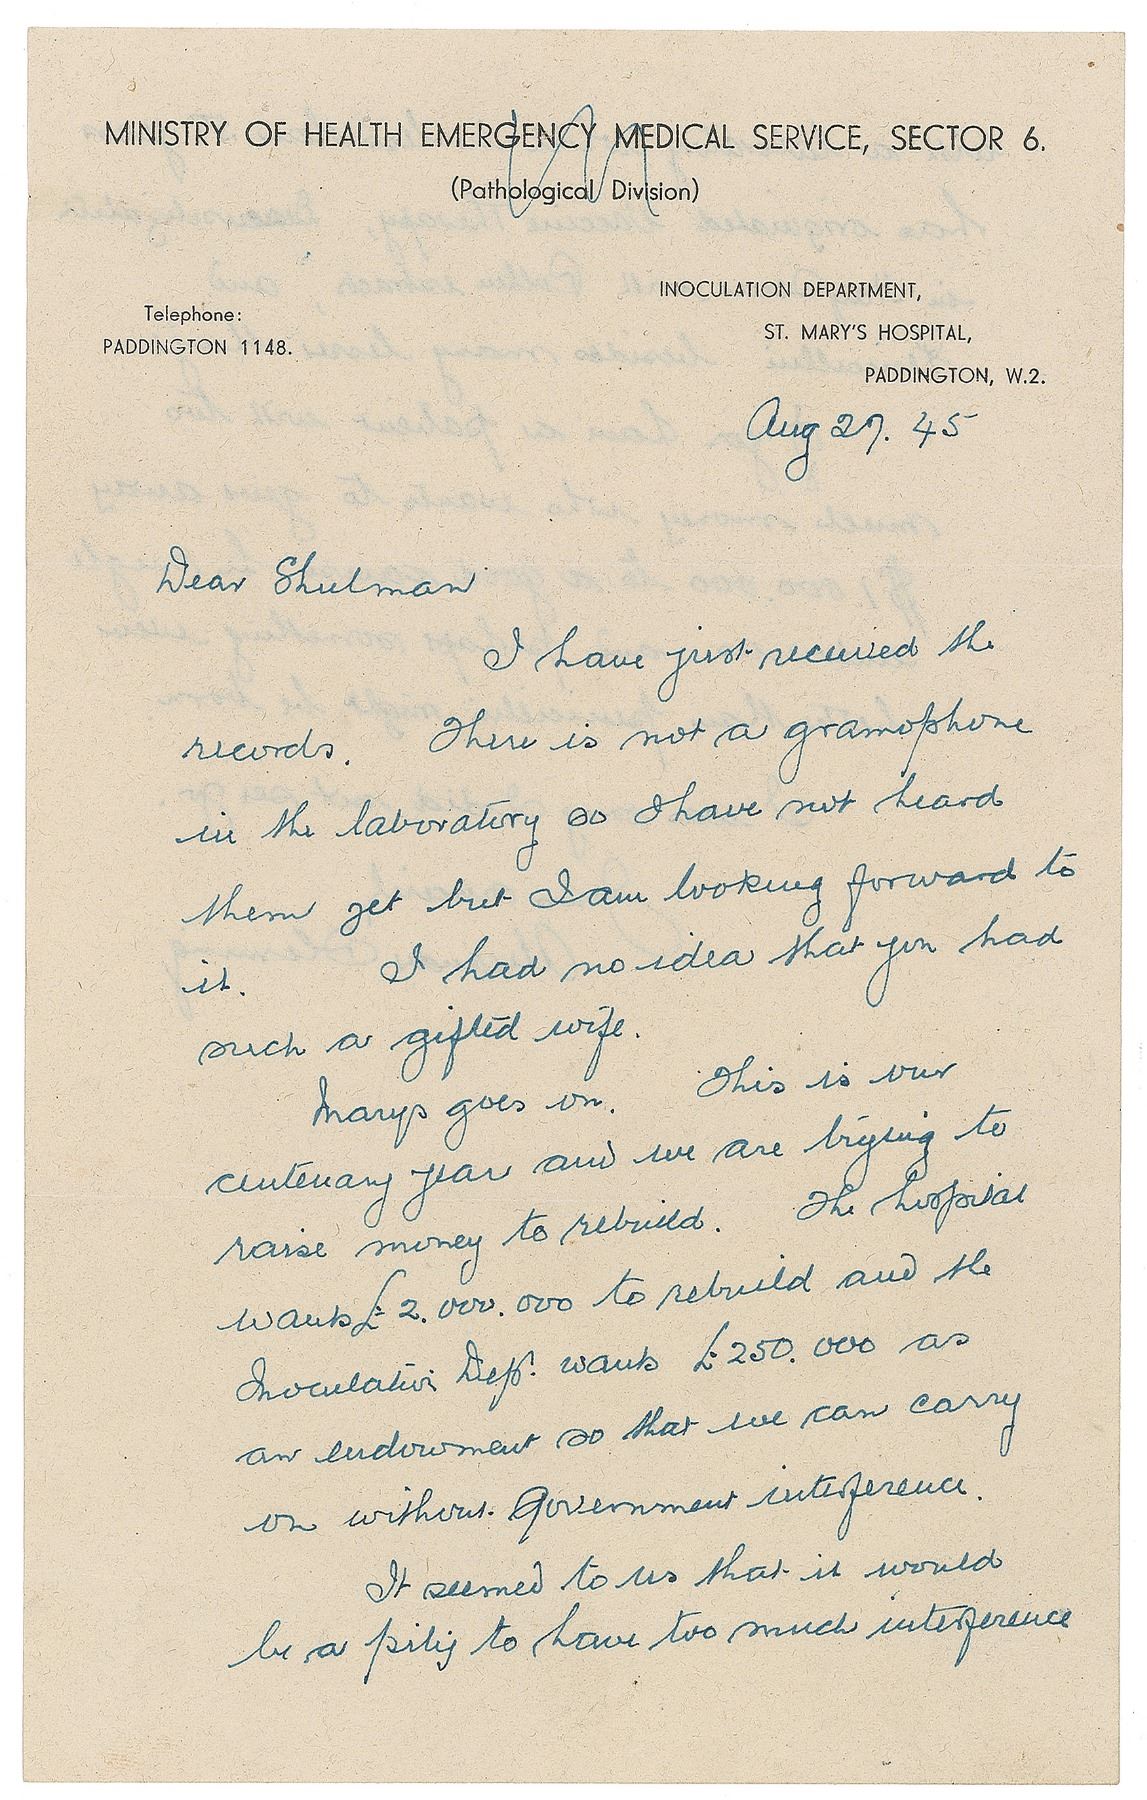 MINISTRY OF HEALTH EMERGENCY MEDICAL SERVICE, SECTOR 6.
(Pathological Division)
INOCULATION DEPARTMENT,
Telephone:
ST. MARY'S HOSPITAL,
PADDINGTON 1148.
PADDINGTON, W.2.
Aug 27. 45
Dear Shulman
I have just received the
records. There is not a gramophone
in the laboratory so I have not heard
them yet but I am looking forward to
it. I had no idea that you had
such a gifted wife.
Marys goes on. This is our
centenary year and we are trying to
raise money to rebuild. The hospital
wants £2.000.000 to rebuild and the
Inoculation Dept. wants £250.000 as
an endowment so that we can carry
on without Government interference.
It seemed to us that it would
be a pity to have too much interference